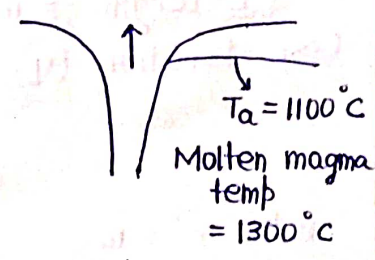 Ta = 1100°C
Molten magma
temp
= 1300°C